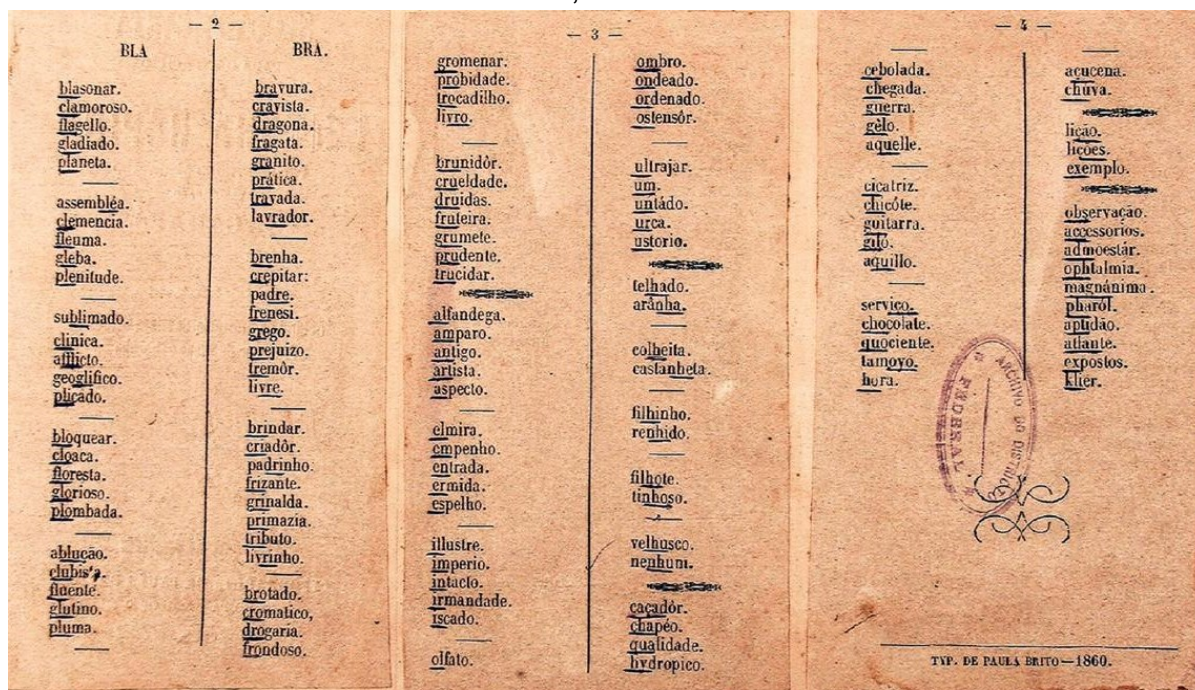 — 2 —
BLA
blasonar.
clamoroso.
flagello.
gladiado.
planeta.
assembléa.
clemencia.
fleuma.
gleba.
plenitude.
sublimado.
clinica.
afflicto.
geoglifico.
plicado.
bloquear.
cloaca.
floresta.
glorioso.
plombada.
ablução.
clubista.
fluente.
glutino.
pluma.
BRA.
bravura.
cravista.
dragona.
fragata.
granito.
prática.
travada.
lavrador.
brenha.
crepitar:
padre.
frenesi.
grego.
prejuizo.
tremôr.
livre.
brindar.
criadôr.
padrinho.
frizante.
grinalda.
primazia.
tributo.
livrinho.
brotado.
cromatico,
drogaria.
frondoso.
— 3 —
gromenar.
probidade.
trocadilho.
livro.
brunidôr.
crueldade.
druidas.
fruteira.
grumete.
prudente.
trucidar.
alfandega.
amparo.
antigo.
artista.
aspecto.
elmira.
empenho.
entrada.
ermida.
espelho.
illustre.
imperio.
intacto.
irmandade.
iscado.
olfato.
ombro.
ondeado.
ordenado.
ostensôr.
ultrajar.
um.
untádo.
urca.
ustorio.
telhado.
arânha.
colheita.
castanheta.
filhinho.
renhido.
filhote.
tinhoso.
velhusco.
nenhum.
caçadôr.
chapéo.
qualidade.
hydropico.
— 4 —
cebolada.
chegada.
guerra.
gêlo.
aquelle.
cicatriz.
chicóte.
guitarra.
giló.
aquillo.
serviço.
chocolate.
quociente.
tamoyo.
hora.
açucena.
chuva.
lição.
lições.
exemplo.
observação.
accessorios.
admoestár.
ophtalmia.
magnánima.
pharól.
aptidão.
atlante.
expostos.
Klier.
ARCHIVO DO DISTRICTO
FEDERAL
TYP. DE PAULA BRITO—1860.